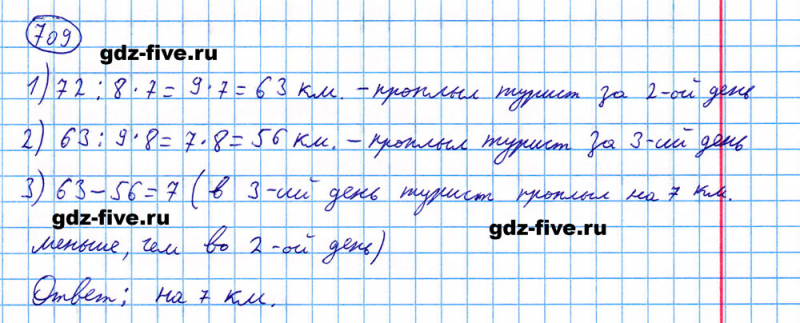 709
gdz-five.ru
1) 72 : 8 · 7 = 9 · 7 = 63 км. – проплыл турист за 2-ой день
2) 63 : 9 · 8 = 7 · 8 = 56 км. – проплыл турист за 3-ий день
3) 63 – 56 = 7 (в 3-ий день турист проплыл на 7 км.
gdz-five.ru
gdz-five.ru
меньше, чем во 2-ой день)
Ответ: на 7 км.